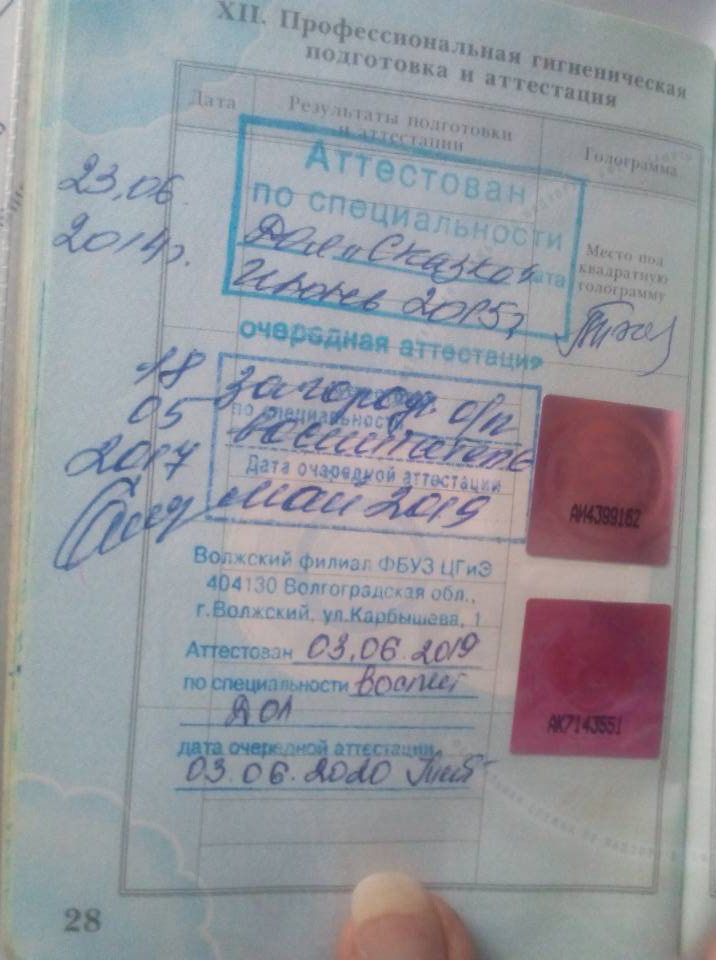 XII. Профессиональная гигиеническая
подготовка и аттестация
Дата
Результаты подготовки
и аттестации
Голограмма
23.06
2014г.
Аттестован
по специальности
Дол „Сказка"
дата
2015г
Место под
квадратную
голограмму
очередная аттестация
18
05
2017
загород. о/л
по специальности
воспитатель
Дата очередной аттестации
май 2019
АИ4399162
Волжский филиал ФБУЗ ЦГиЭ
404130 Волгоградская обл.,
г.Волжский, ул.Карбышева, 1
Аттестован 03.06.2019
по специальности воспит
ДОЛ
АК7143551
дата очередной аттестации
03.06.2020
28